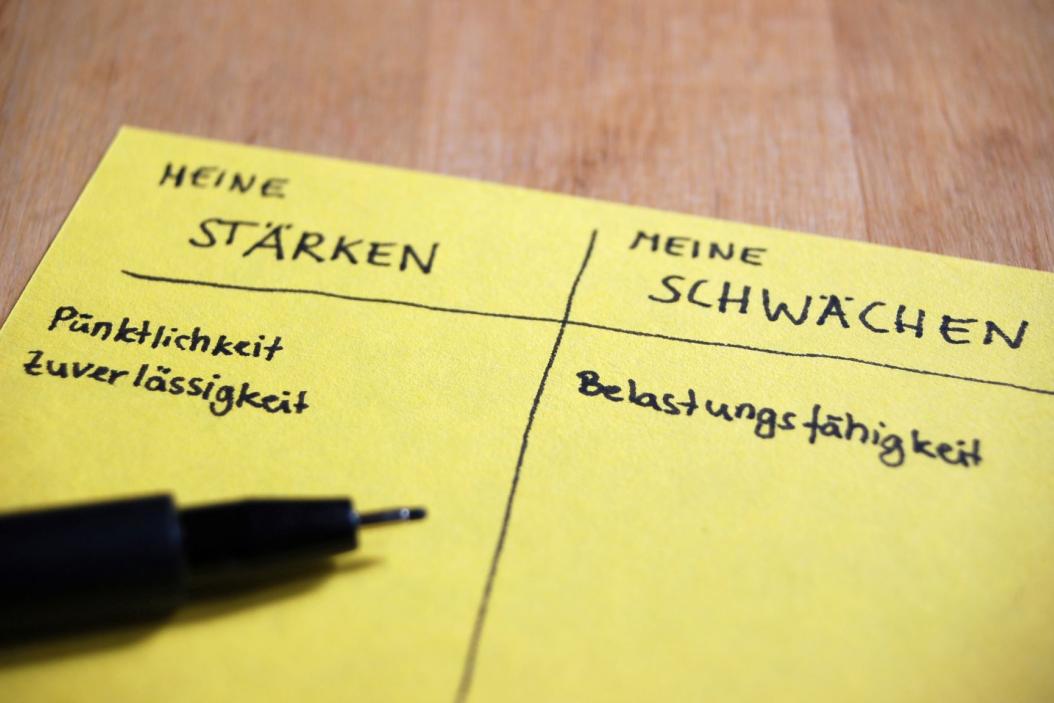 MEINE
STÄRKEN
Pünktlichkeit
Zuverlässigkeit
MEINE
SCHWÄCHEN
Belastungsfähigkeit